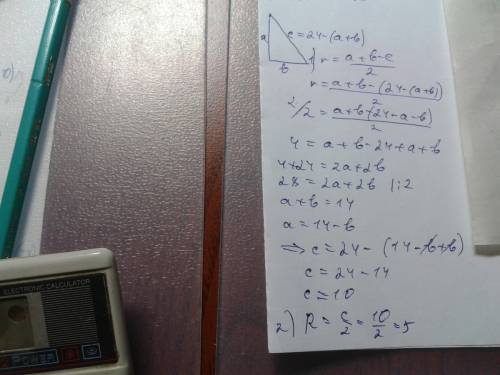 a
c = 24-(a+b)
b
1) r = a+b-c / 2
r = a+b-(24-(a+b)) / 2
2/2 = a+b-(24-a-b) / 2
4 = a+b-24+a+b
4+24 = 2a+2b
28 = 2a+2b |:2
a+b = 14
a = 14-b
⇒ c = 24-(14-b+b)
c = 24-14
c = 10
2) R = c/2 = 10/2 = 5
ELECTRONIC CALCULATOR
POWER